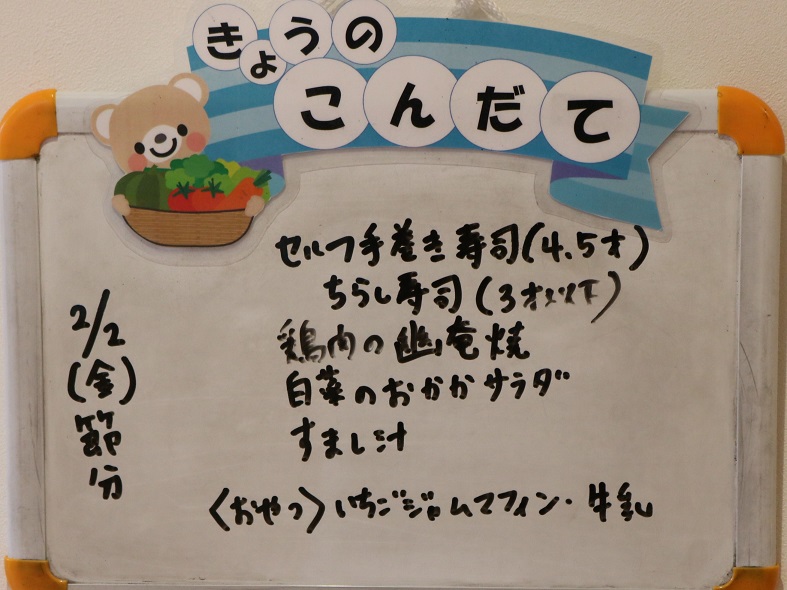 きょうの
こんだて
2/2
(金)
節分
セルフ手巻き寿司(4.5才)
ちらし寿司(3才以下)
鶏肉の幽庵焼
白菜のおかかサラダ
すまし汁
〈おやつ〉いちごジャムマフィン・牛乳